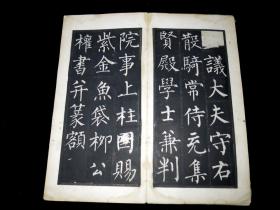 議大夫守右
散騎常侍充集
賢殿學士兼判
院事上柱國賜
紫金魚袋柳公
權書并篆額